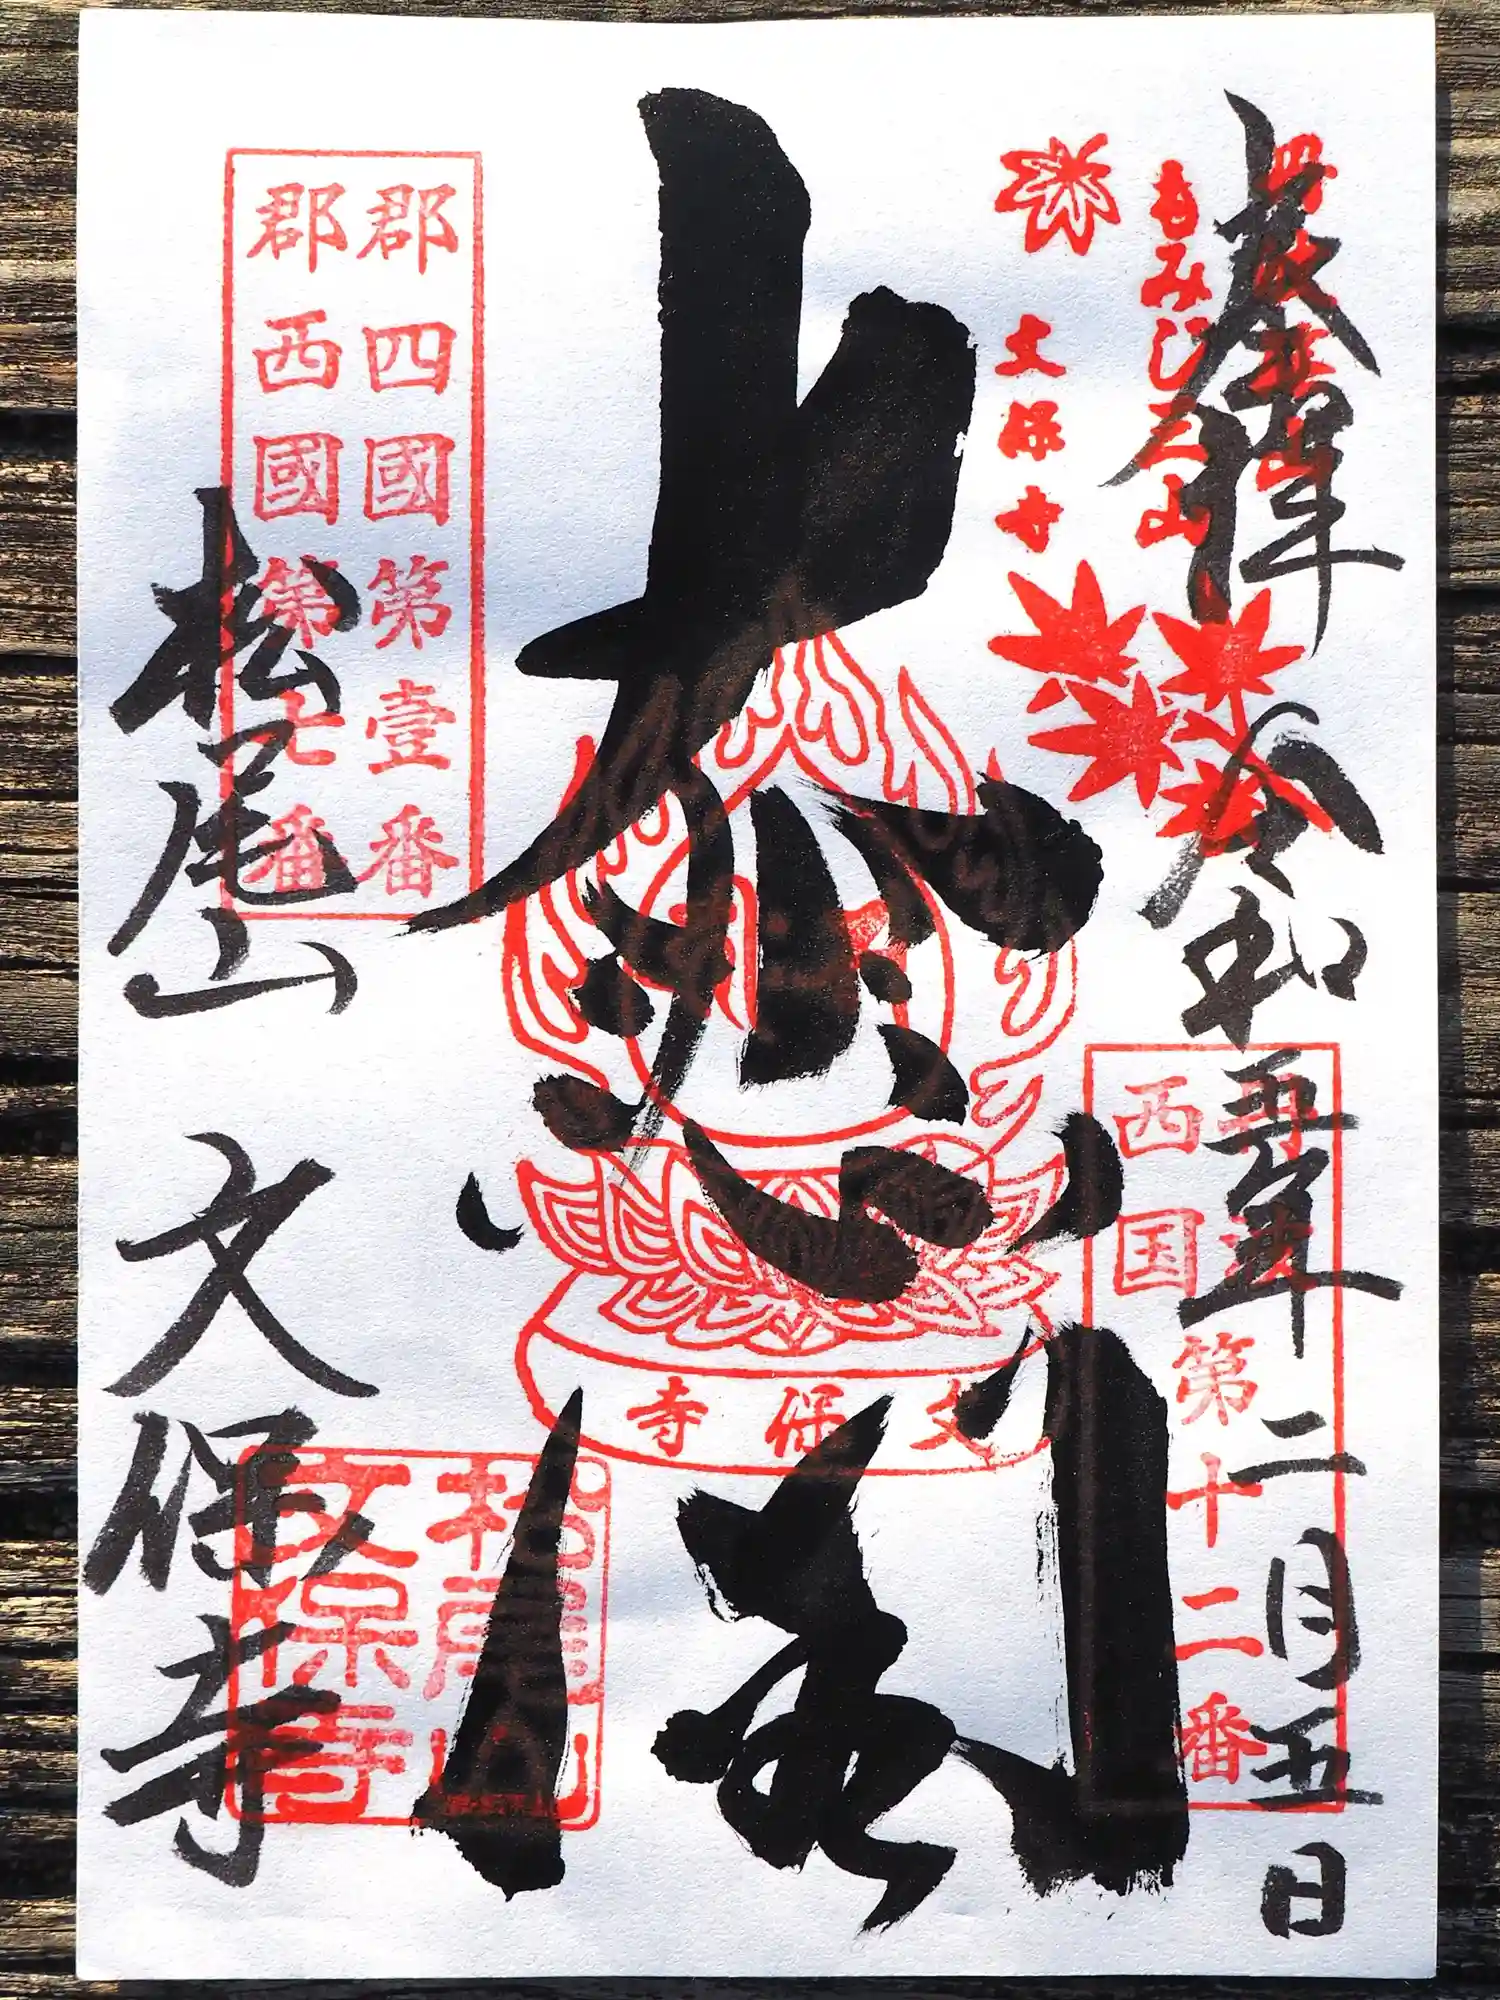 奉拝
令和五年二月五日
四国
もみじ三山
文保寺
西国第十二番
大悲閣
文保寺
郡四國第壹番
郡西國第七番
松尾山
文保寺
松尾山
文保寺